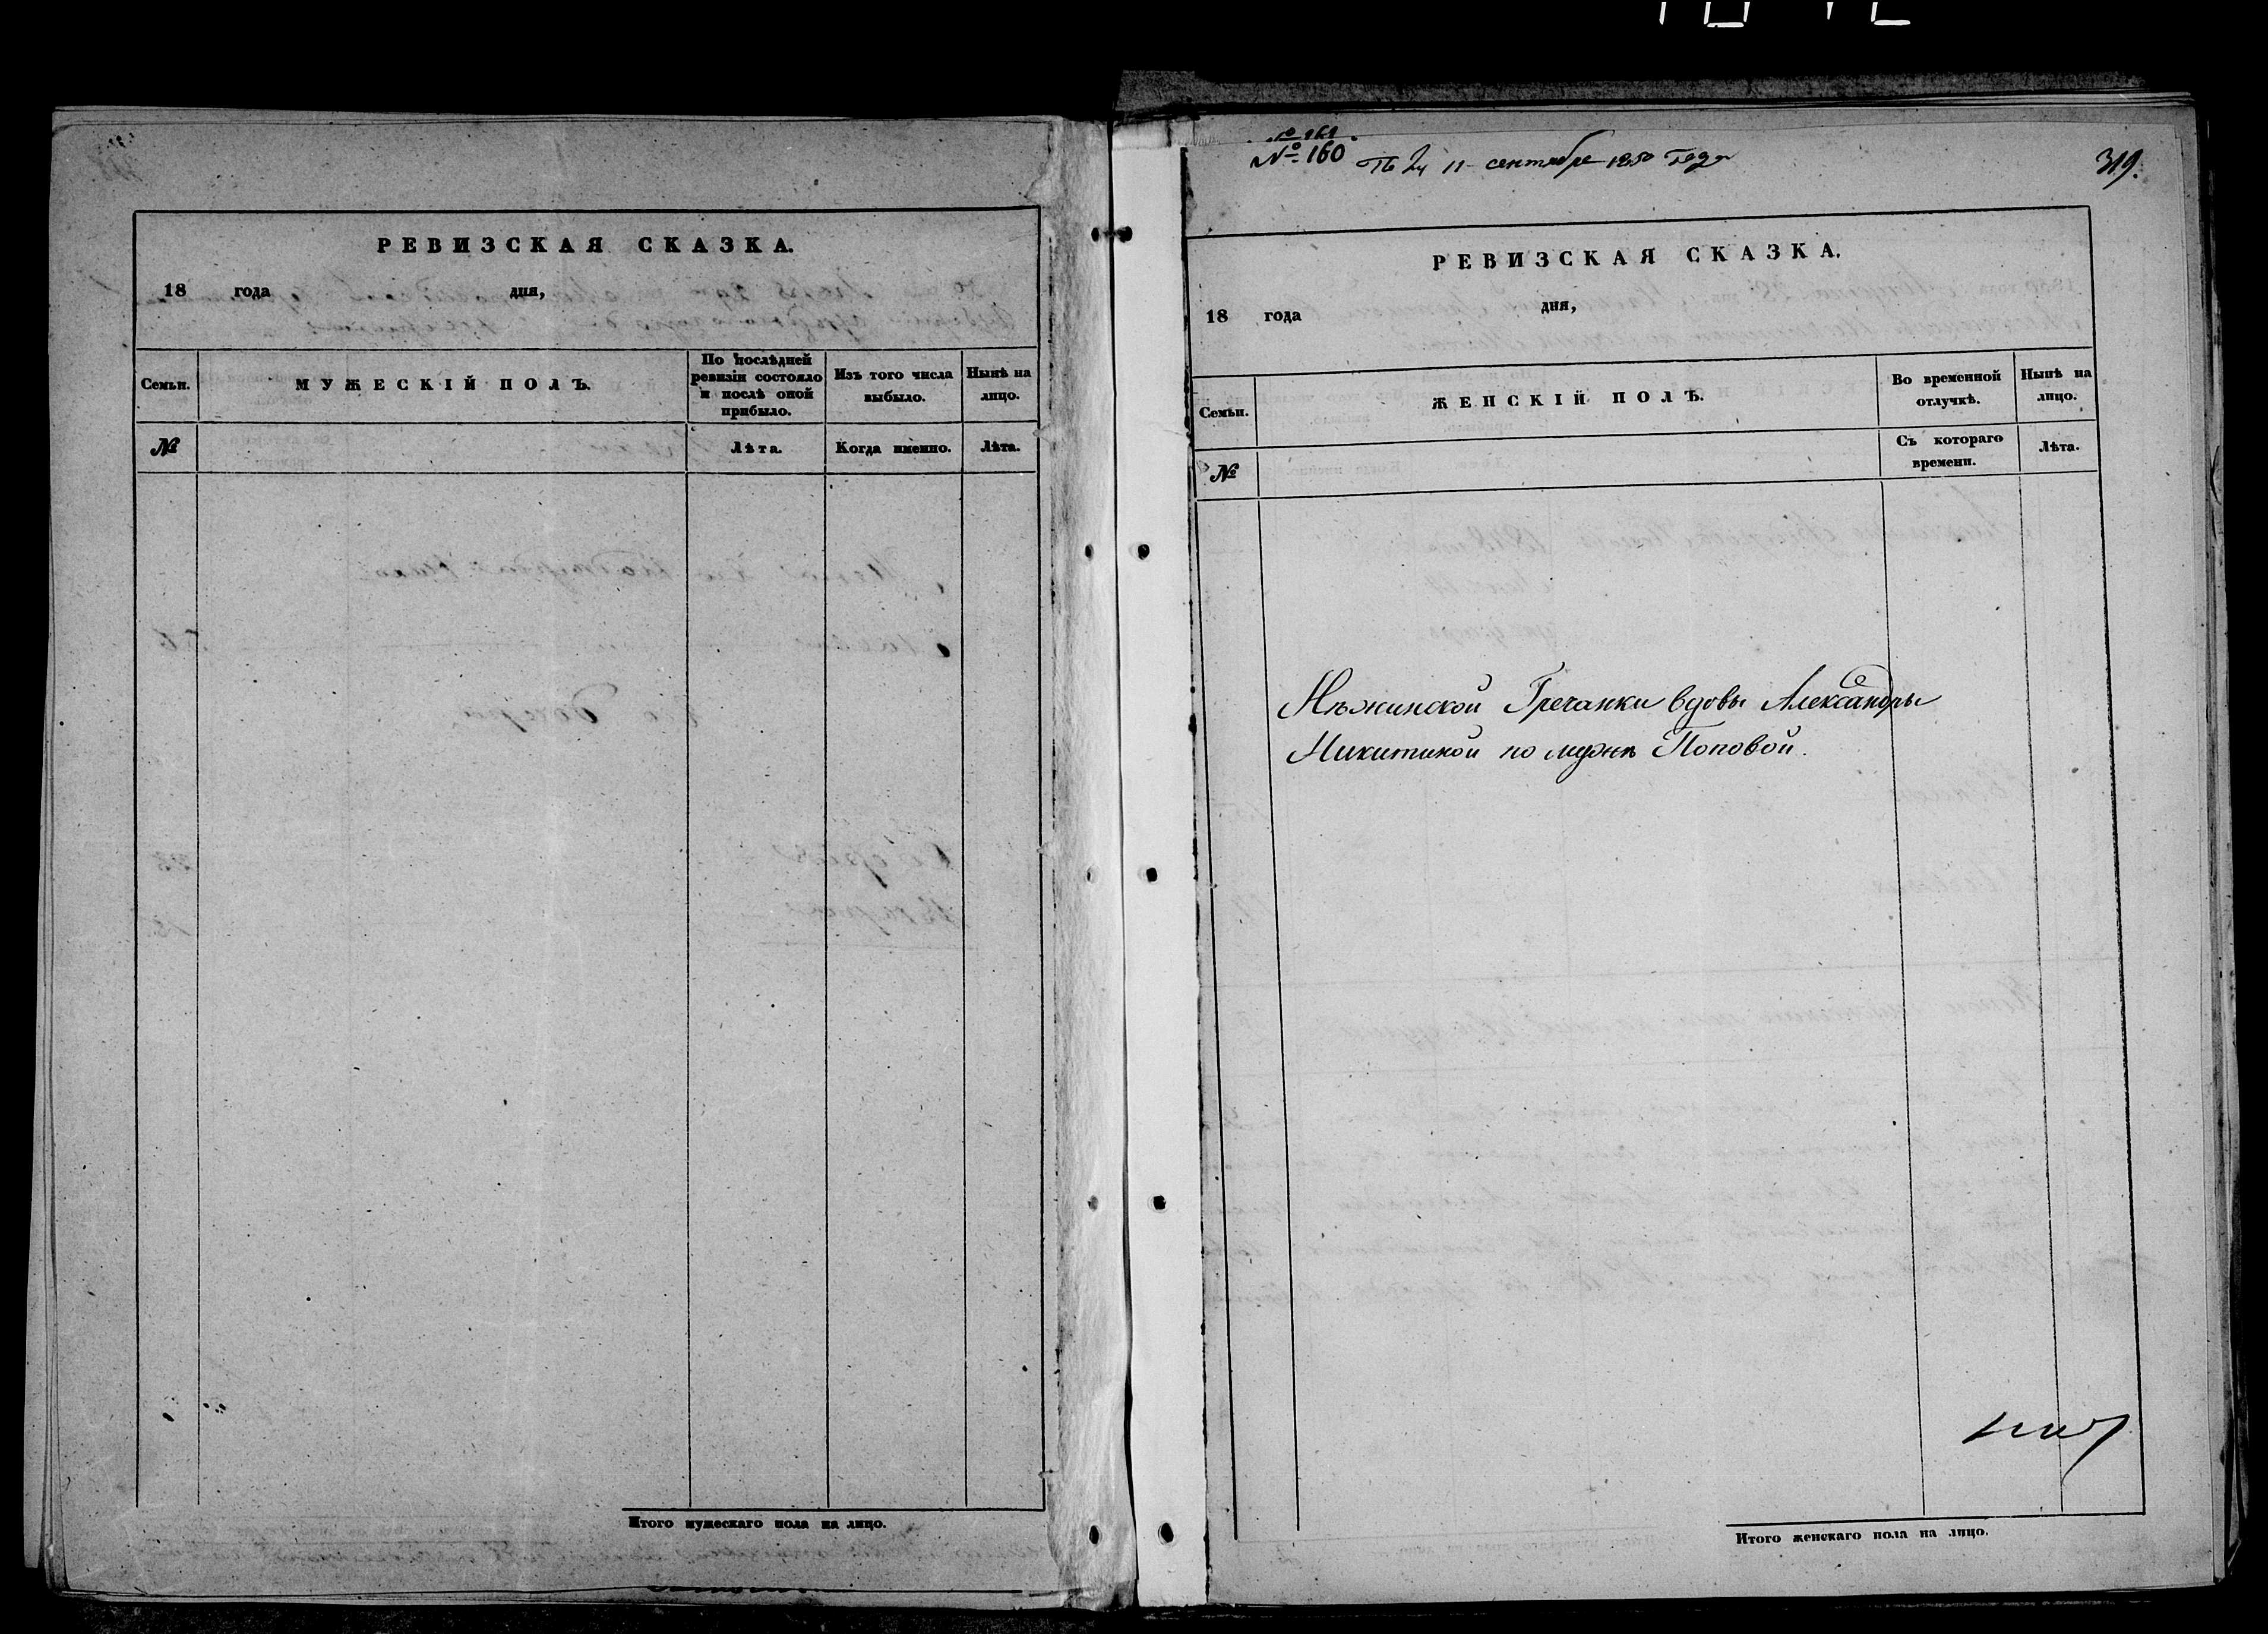 РЕВИЗСКАЯ СКАЗКА.
18 года дня,
Семьи.
МУЖЕСКІЙ ПОЛЪ.
По послѣдней ревизіи состояло и послѣ оной прибыло.
Изъ того числа выбыло.
Нынѣ на лицо.
№
Лѣта.
Когда именно.
Лѣта.
Итого мужескаго пола на лицо.
№ 161
№ 160
11 сентября 1850 года
319.
РЕВИЗСКАЯ СКАЗКА.
18 года дня,
Семьи.
ЖЕНСКІЙ ПОЛЪ.
Во временной отлучкѣ.
Нынѣ на лицо.
№
Съ котораго времени.
Лѣта.
Нѣжинской Гречанки вдовы Александры
Никитиной по мужѣ Поповой.
Итого женскаго пола на лицо.